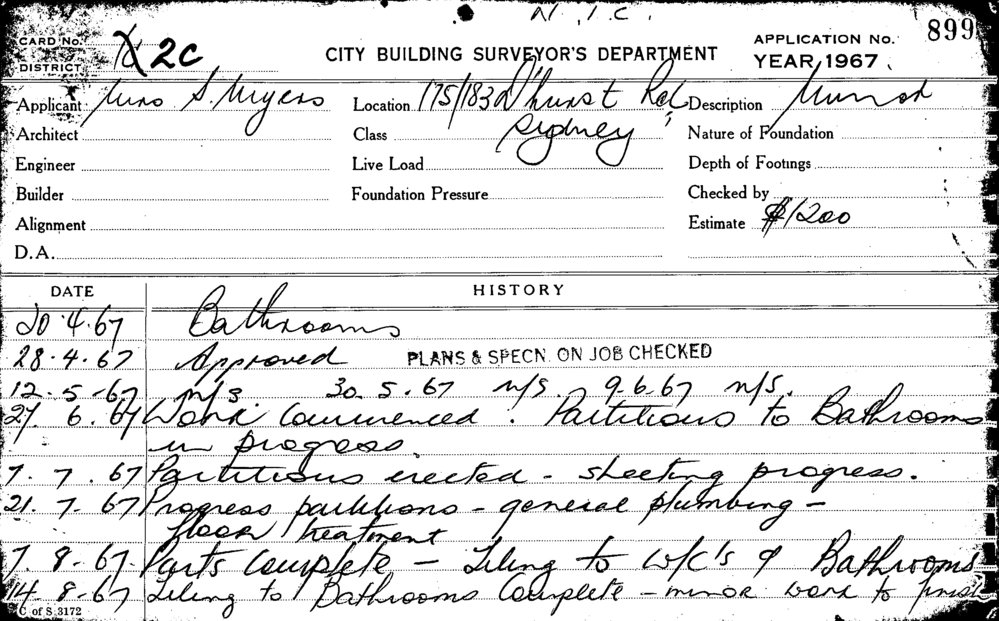 N.I.C.
CARD No. 2C CITY BUILDING SURVEYOR'S DEPARTMENT APPLICATION No. 899
DISTRICT YEAR, 1967
Applicant S. Myers Location 175/183 D'hurst Rd Description
Architect Class Sydney Nature of Foundation
Engineer Live Load Depth of Footings
Builder Foundation Pressure Checked by
Alignment Estimate $1200
D.A.
DATE HISTORY
20.4.67 Bathrooms
28.4.67 Approved PLANS & SPECN. ON JOB CHECKED
12.5.67 n/s. 30.5.67 n/s. 9.6.67 n/s.
27.6.67 Work Commenced. Partitions to Bathrooms
in progress.
7.7.67 Partitions erected - sheeting progress.
21.7.67 Progress partitions - general plumbing -
floor treatment
7.8.67. Parts Complete - Tiling to W/C's & Bathrooms
14.8.67 Tiling to Bathrooms Complete - minor work to finish
C of S 3172